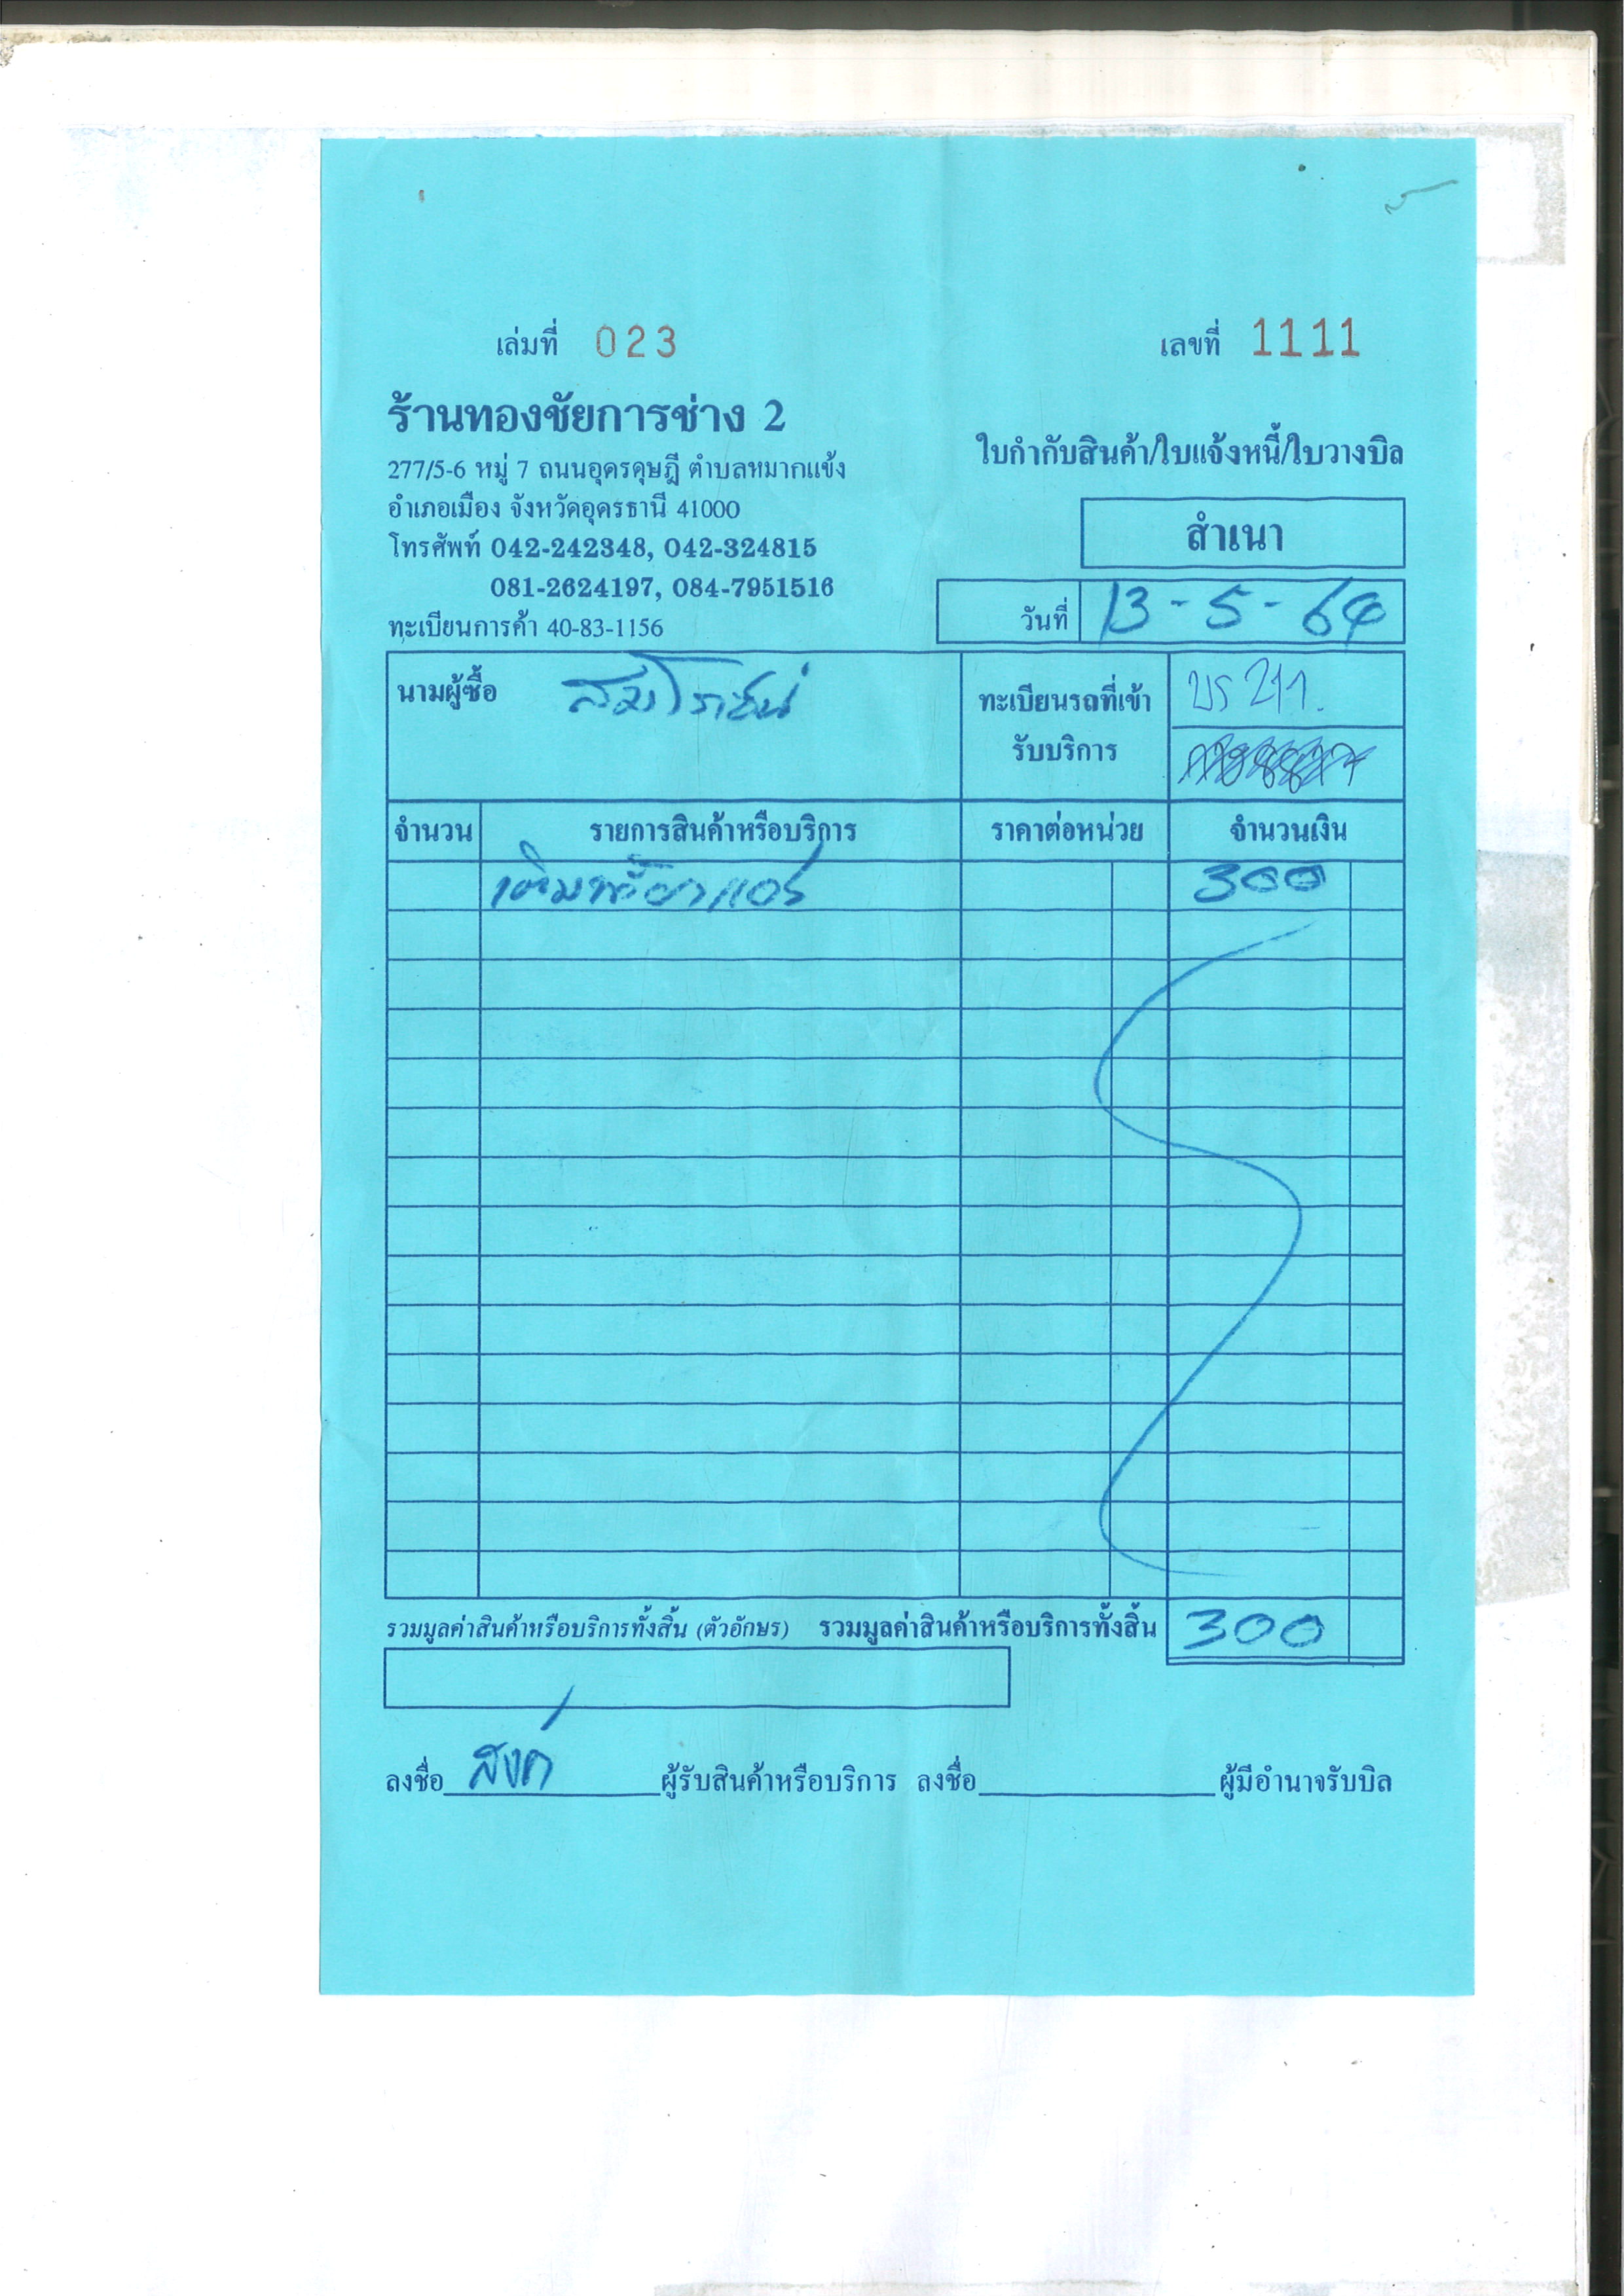 เล่มที่ 023 เลขที่ 1111
ร้านทองชัยการช่าง 2
277/5-6 หมู่ 7 ถนนอุดรดุษฎี ตำบลหมากแข้ง
อำเภอเมือง จังหวัดอุดรธานี 41000
โทรศัพท์ 042-242348, 042-324815
081-2624197, 084-7951516
ทะเบียนการค้า 40-83-1156
ใบกำกับสินค้า/ใบแจ้งหนี้/ใบวางบิล
สำเนา
วันที่ 13-5-64
นามผู้ซื้อ
ทะเบียนรถที่เข้า
รับบริการ
บร 211.
จำนวน รายการสินค้าหรือบริการ ราคาต่อหน่วย จำนวนเงิน
เติมน้ำยาแอร์ 300
รวมมูลค่าสินค้าหรือบริการทั้งสิ้น (ตัวอักษร) รวมมูลค่าสินค้าหรือบริการทั้งสิ้น 300
ลงชื่อ ผู้รับสินค้าหรือบริการ ลงชื่อ ผู้มีอำนาจรับบิล